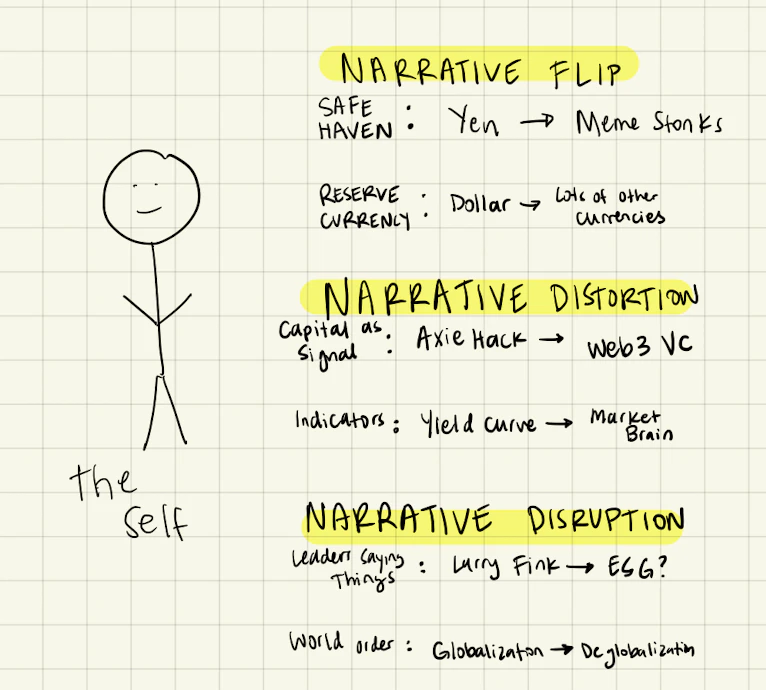 NARRATIVE FLIP
SAFE
HAVEN : Yen → Meme Stonks
RESERVE
CURRENCY : Dollar → Lots of other
currencies
NARRATIVE DISTORTION
Capital as
Signal : Axie Hack → Web3 VC
Indicators : Yield Curve → Market
Brain
the
self
NARRATIVE DISRUPTION
Leaders Saying
Things : Larry Fink → ESG?
World order : Globalization → Deglobalization